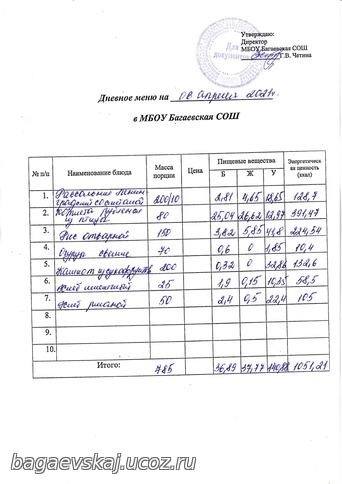 Утверждаю:
Директор
МБОУ Багаевская СОШ
Г.В. Четина
Для документов
Дневное меню на 08 апреля 2021г.
в МБОУ Багаевская СОШ
№ п/п Наименование блюда Масса порции Цена Пищевые вещества Энергетическая ценность (ккал)
Б Ж У
1. Рассольник Ленинградский со сметаной 200/10 2,81 4,65 18,65 128,7
2. Котлеты рубленые из птицы 80 25,04 26,62 12,97 391,47
3. Рис отварной 150 3,82 5,85 224,54
4. Огурцы свежие 70 0,6 0 1,85 10,4
5. Компот из сухофруктов 200 0,32 0 32,86 132,6
6. Хлеб пшеничный 25 1,9 0,15 58,5
7. Хлеб ржаной 50 2,4 0,5 22,4 105
8.
9.
10.
Итого: 785 36,89 37,77 140,88 1051,21
bagaevskaj.ucoz.ru